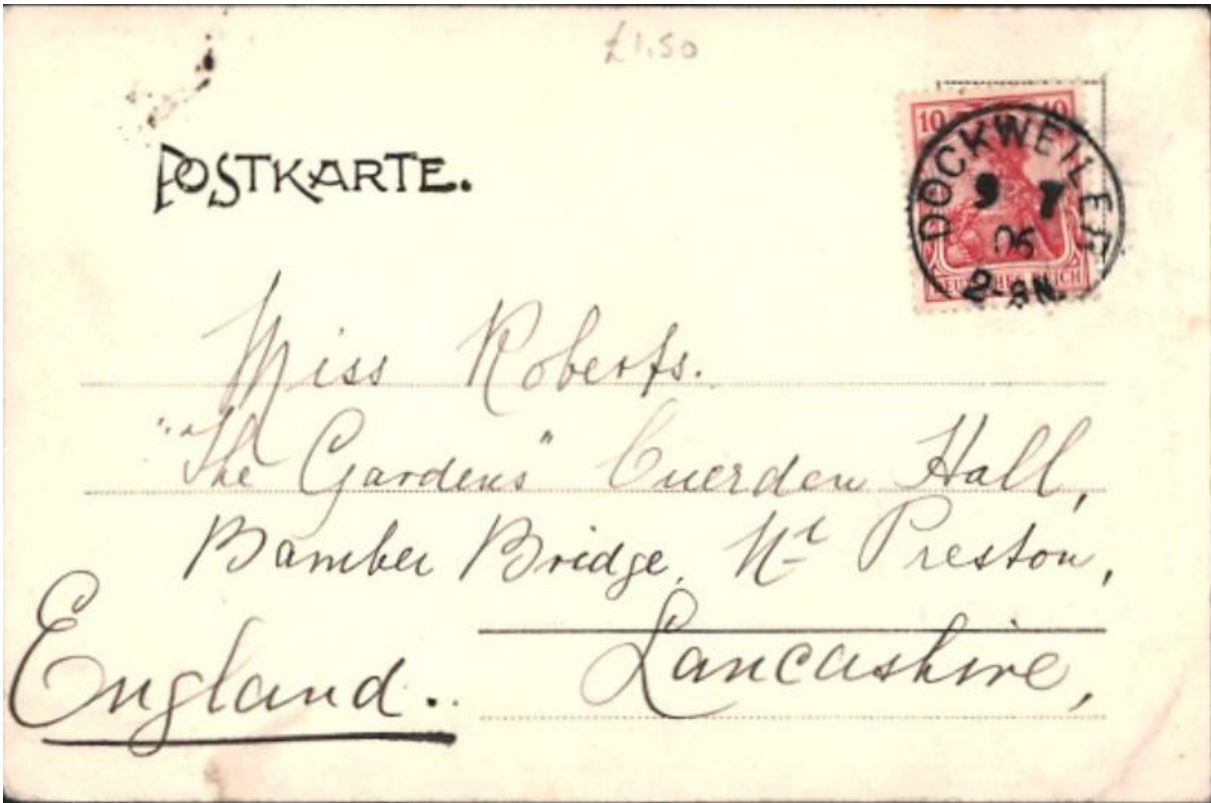 £1.50
POSTKARTE.
10 10
DOCKWEILER
9 7
06
2-8N.
DEUTSCHES REICH
Miss Roberts.
"The Gardens" Cuerden Hall,
Bamber Bridge, Nr Preston,
Lancashire,
England.